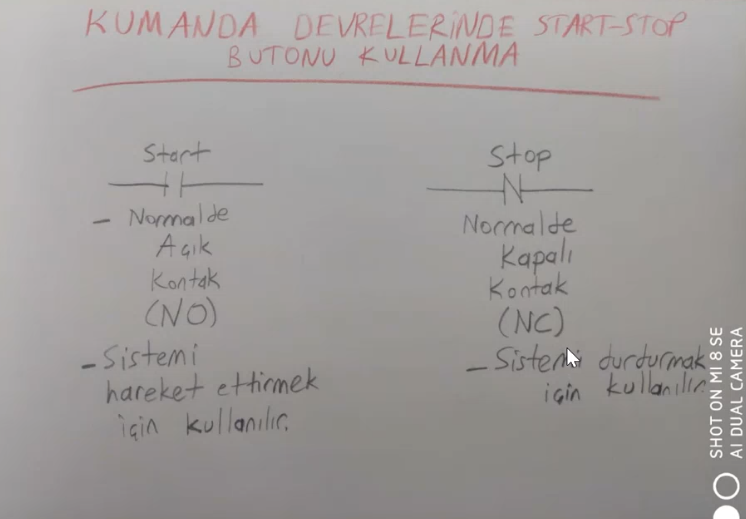 KUMANDA DEVRELERİNDE START-STOP
BUTONU KULLANMA
Start
- Normalde
Açık
Kontak
(NO)
- Sistemi
hareket ettirmek
için kullanılır.
Stop
Normalde
Kapalı
Kontak
(NC)
- Sistemi durdurmak
için kullanılır.
SHOT ON MI 8 SE
AI DUAL CAMERA